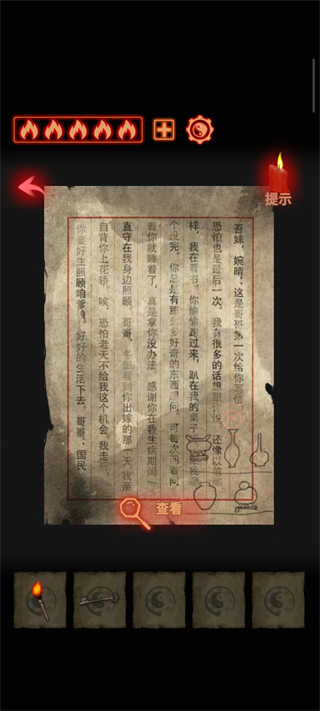 提示
吾妹，婉晴，这是哥哥第一次给你写信
恐怕也是最后一次，我有很多的话想跟你说，还像以前那
样，我在看书，你偷偷走过来，趴在我的桌子
个没完，你总是有那么多好奇的东西想问，可每次问着问
着你就睡着了，真是拿你没办法，感谢你在我生病期间一
直守在我身边照顾，哥哥，多想看到你出嫁的那一天，我亲
自背你上花轿，唉，恐怕老天不给我这个机会，我走后，
你要好生照顾咱爹娘，好好的生活下去，哥哥：国民
查看